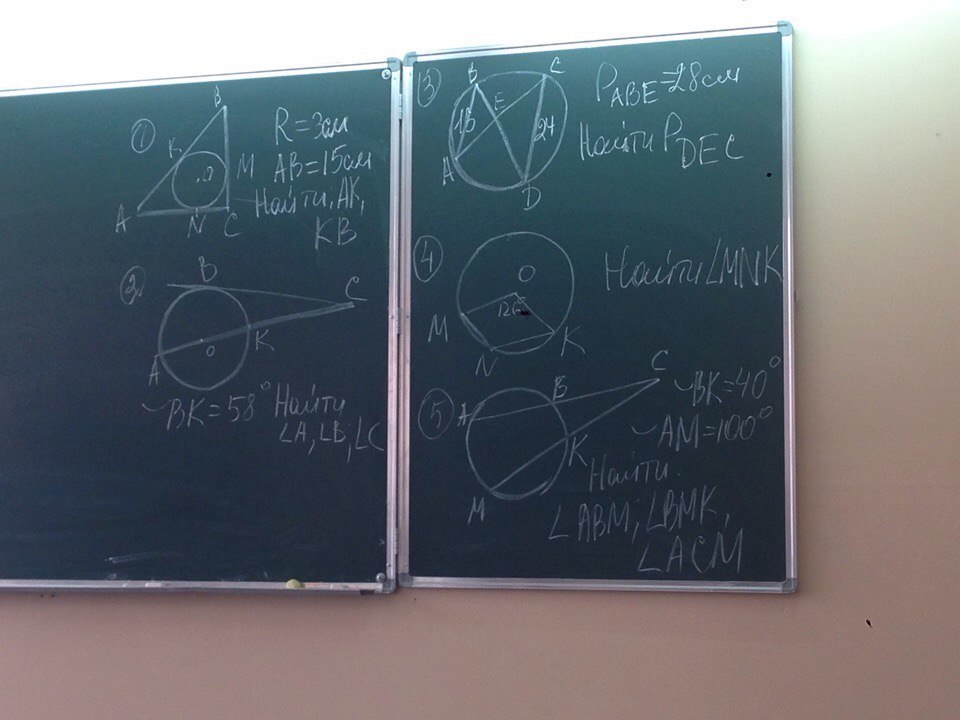 ①
B
K
O
M
A
N
C
R = 3см
AB = 15см
Найти, AK,
KB
②
B
C
K
O
A
◡BK = 58° Найти
∠A, ∠B, ∠C
③
B
C
E
24
A
D
P ABE = 28см
Найти P DEC
④
O
126°
M
N
K
Найти ∠MNK
⑤
A
Б
C
K
M
◡BK = 40°
◡AM = 100°
Найти
∠ABM; ∠BMK,
∠ACM